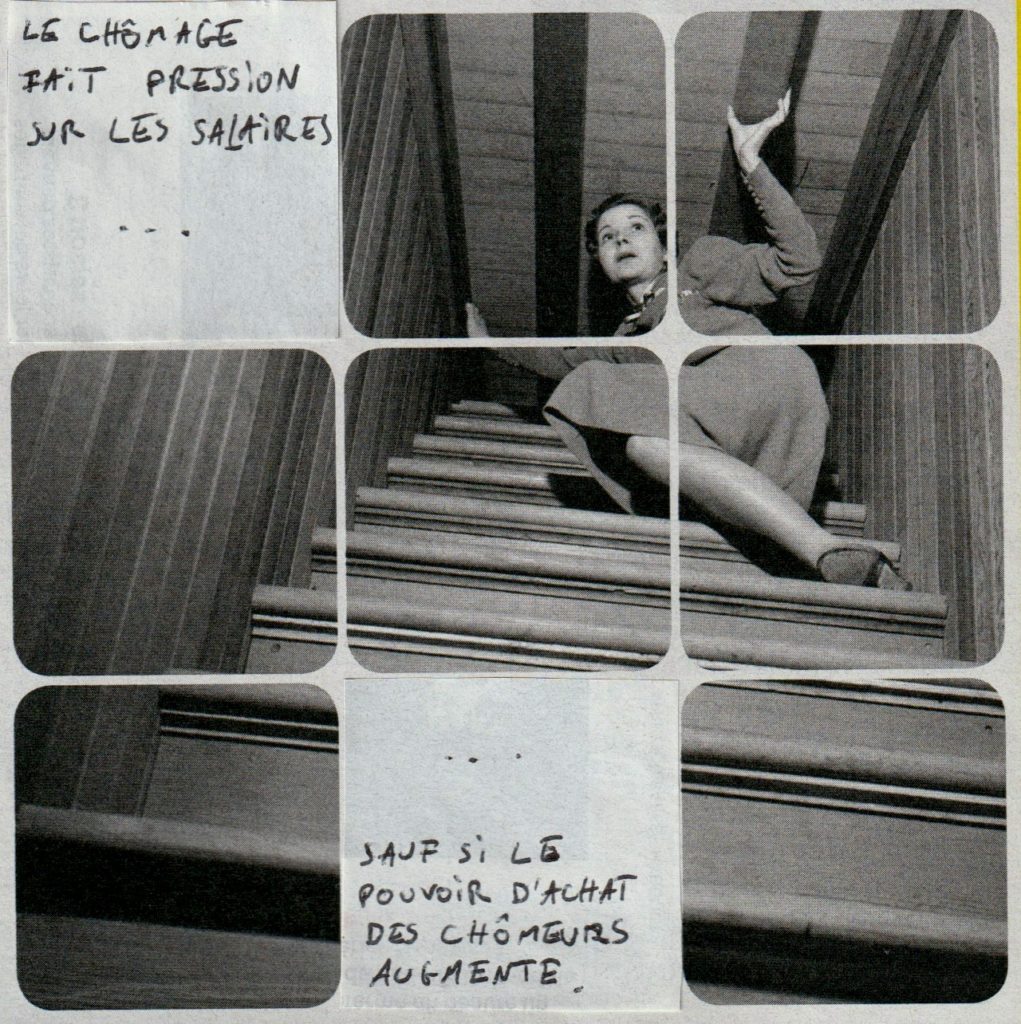 LE CHÔMAGE
FAIT PRESSION
SUR LES SALAIRES
...
...
SAUF SI LE
POUVOIR D'ACHAT
DES CHÔMEURS
AUGMENTE.